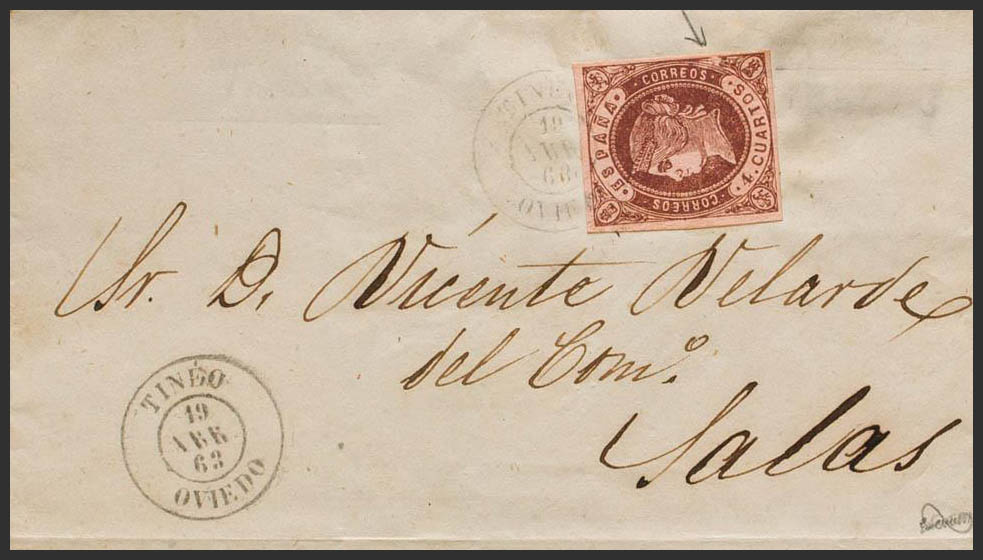 TINEO
19
ABR
63
OVIEDO
CORREOS
ESPAÑA
4. CUARTOS
CORREOS
Sr. D. Vicente Velarde
del Comº.
Salas
TINEO
19
ABR
63
OVIEDO